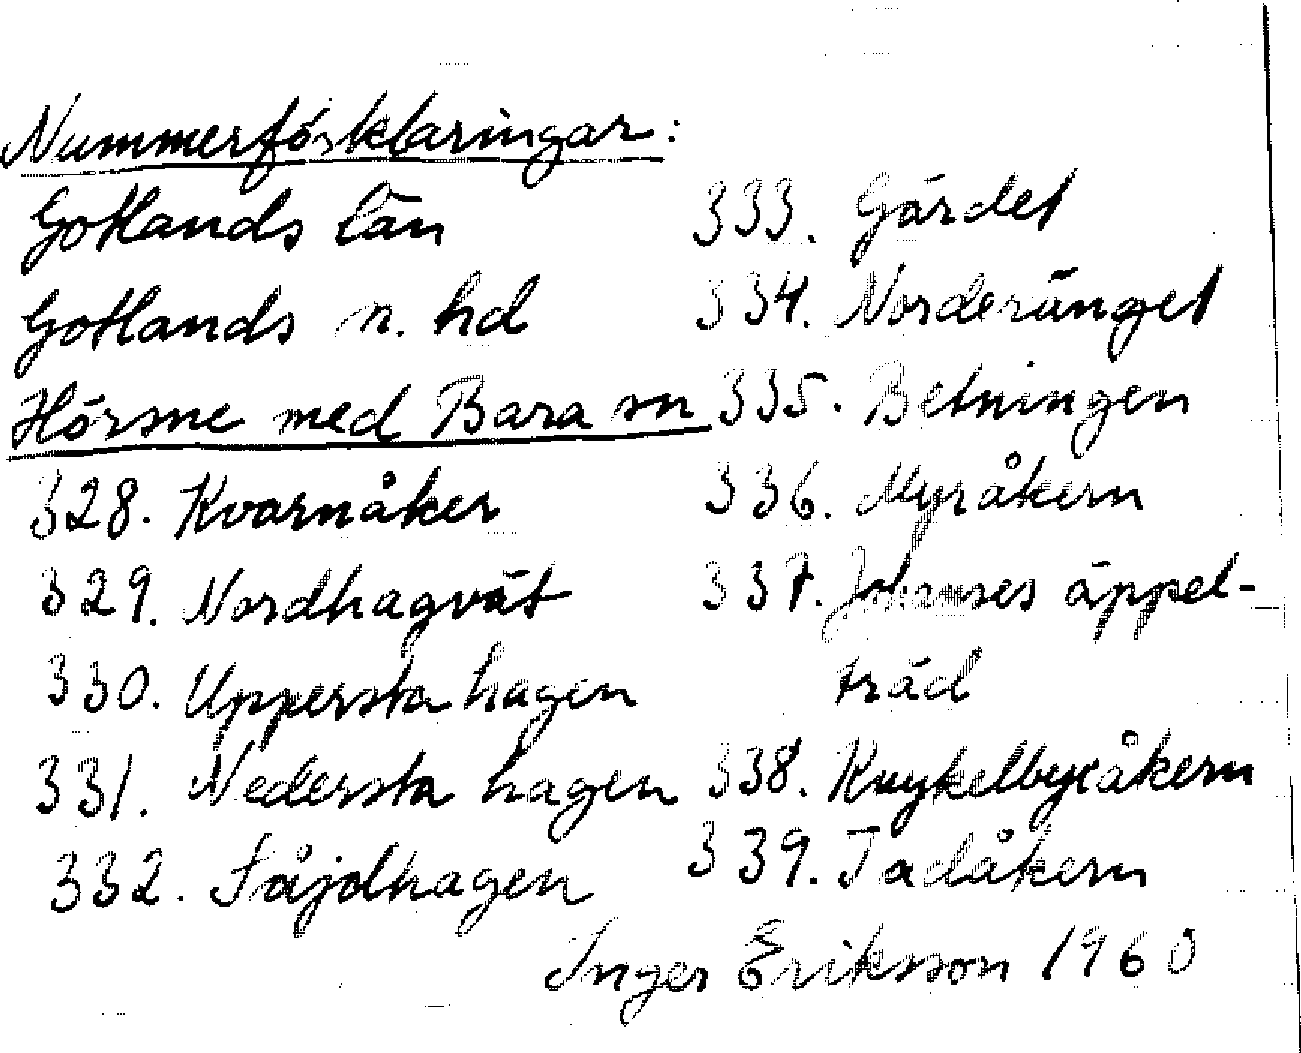 Nummerförklaringar:
Gotlands län
Gotlands n. hd
Hörsne med Bara sn
328. Kvarnåker
329. Nordhagvät
330. Uppersta hagen
331. Nedersta hagen
332. Fåjdhagen
333. Gärdet
334. Norderänget
335. Betningen
336. Myråkern
337. Johanses äppel-
träd
338. åkern
339. Tadåkern
Inger Eriksson 1960